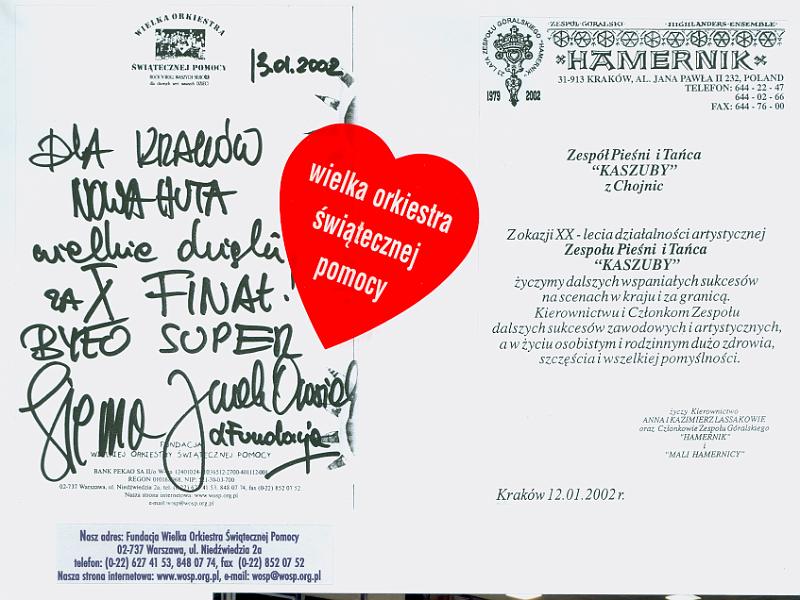 WIELKA ORKIESTRA
ŚWIĄTECZNEJ POMOCY
13.01.2002
DLA KRAKÓW
NOWA HUTA
wielkie dzięki
za X FINAŁ!
BYŁO SUPER
Siema Jurek Owsiak
&Fundacja
FUNDACJA
WIELKIEJ ORKIESTRY ŚWIĄTECZNEJ POMOCY
BANK PEKAO SA
REGON
02-737 Warszawa, ul. Niedźwiedzia 2a, tel. (0-22) 627 41 53, 848 07 74, fax (0-22) 852 07 52
Nasza strona internetowa: www.wosp.org.pl
e-mail: wosp@wosp.org.pl
Nasz adres: Fundacja Wielka Orkiestra Świątecznej Pomocy
02-737 Warszawa, ul. Niedźwiedzia 2a
telefon: (0-22) 627 41 53, 848 07 74, fax (0-22) 852 07 52
Nasza strona internetowa: www.wosp.org.pl, e-mail: wosp@wosp.org.pl
wielka orkiestra
świątecznej
pomocy
ZESPÓŁ GÓRALSKI HIGHLANDERS ENSEMBLE
HAMERNIK
31-913 KRAKÓW, AL. JANA PAWŁA II 232, POLAND
TELEFON: 644 - 22 - 47
644 - 02 - 66
FAX: 644 - 76 - 00
23 LATA ZESPOŁU GÓRALSKIEGO "HAMERNIK"
1979 2002
Zespół Pieśni i Tańca
"KASZUBY"
z Chojnic
Z okazji XX - lecia działalności artystycznej
Zespołu Pieśni i Tańca
"KASZUBY"
życzymy dalszych wspaniałych sukcesów
na scenach w kraju i za granicą.
Kierownictwu i Członkom Zespołu
dalszych sukcesów zawodowych i artystycznych,
a w życiu osobistym i rodzinnym dużo zdrowia,
szczęścia i wszelkiej pomyślności.
życzy Kierownictwo
ANNA I KAZIMIERZ LASSAKOWIE
oraz Członkowie Zespołu Góralskiego
"HAMERNIK"
i
"MALI HAMERNICY"
Kraków 12.01.2002 r.